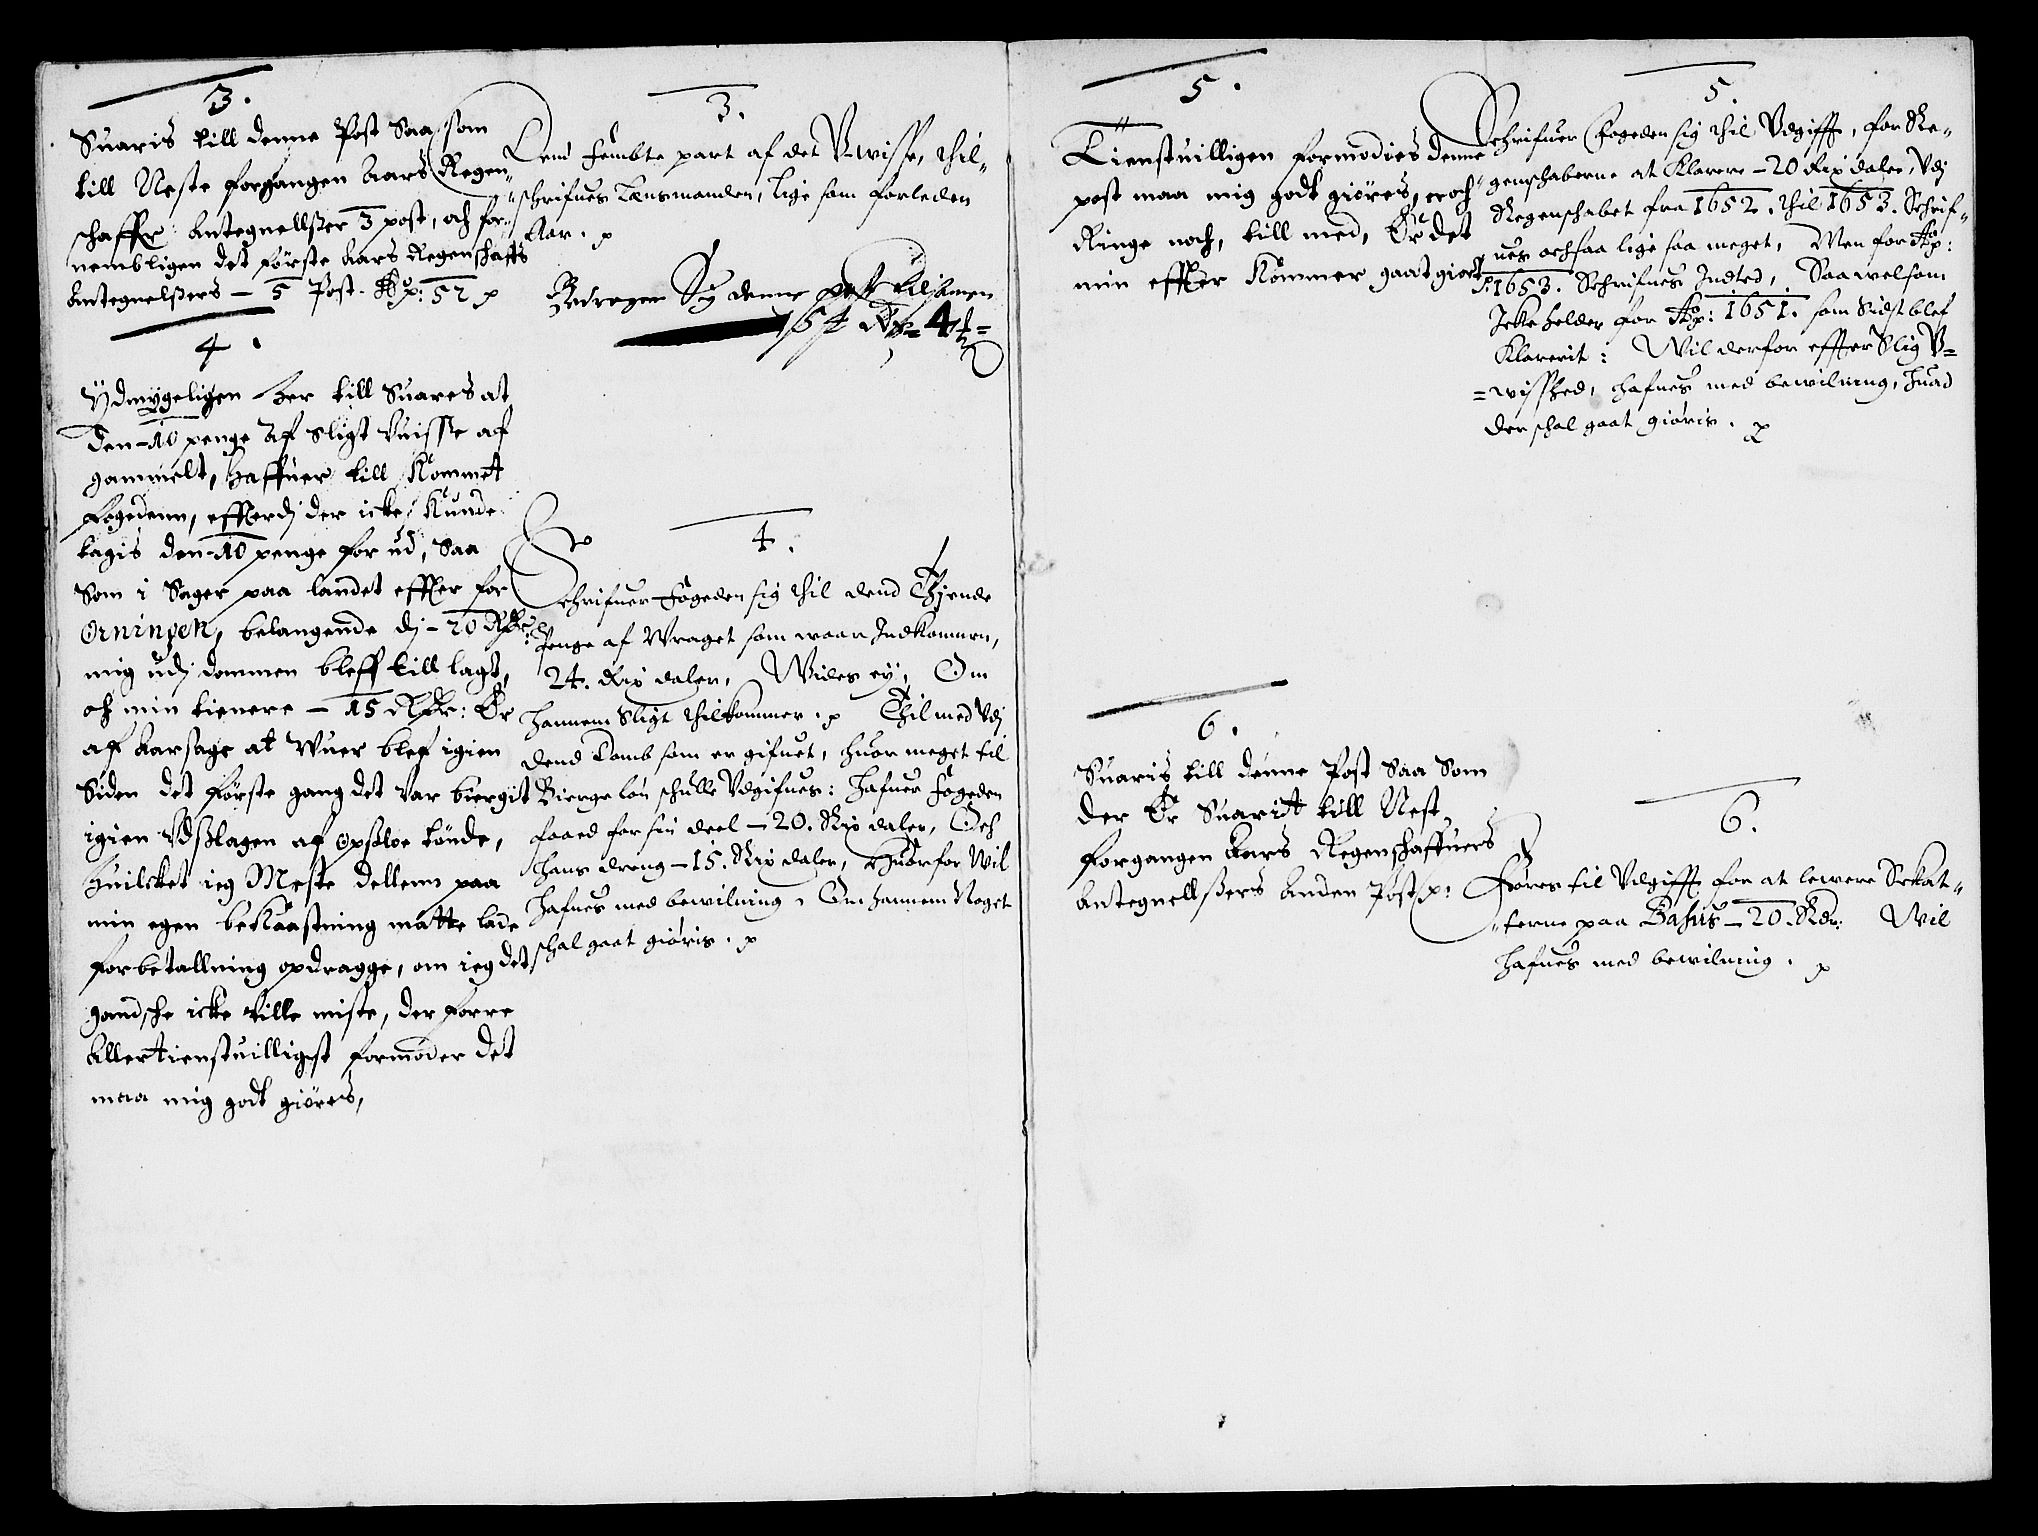 3.
Suaris till denne Post Saa som
till Neste forgangen Aars Regen-
schaffr Antegnellsser 3 post, och for-
nembligen det første Aars Regenschaffs
Antegnelsers - 5 Post. 52
4.
Ydmygeligen her till Suares at
den 10 penge Af sligt Vuisse af
gammelt, haffuer till Kommet
fogedenn, effterdj der icke Kunde
tagis den 10 penge for ud, Saa
Som i Sager paa landet effter for
Orningen, belangende dj - 20 Rdr
mig udj dommen bleff till lagt,
och min tienere - 15 Rdr: Er
af Aarsage at Wuer blef igien
Siden det første gang det var biergit
igien Udslagen af Opsloe tønde,
Huilcket ieg Meste dellenn paa
min egen bekaastning matte lade
for betallning opdragge, om ieg det
gandsche icke ville miste, der forre
Allertienstuilligst formoder det
maa mig godt giøres,
3.
Dend femte part af det Uwisse, thil-
schrifues Lensmanden, lige som forleden
Aar.
Bedrager Sig denne post till
154 Rdr
4.
Schrifuer Fogeden sig thil dend Thiende
Penge af Wraget som waar Indkommen,
24. Rix daler, Wides ey, Om
hannem Sligt thilkommer. Thil med Udj
dend Domb som er gifuet, huor meget til
Bierge løn schulle Udgifues: hafuer fogeden
faaed for sin deel - 20. Rix daler, Och
hans dreng - 15. Rix daler, Huorfor Wil
hafues med bewilning, Om hannem Noget
schal gaat giøris.
5.
Tienstuilligen formodies denne
post maa mig godt giøres, och
Ringe noch, till med, Er det
min effter Kommer gaat giort
6.
Suaris till denne Post Saa Som
der Er Suarit till Nest
forgangen Aars Regenschaffuers
Antegnellssers Anden Post
5.
Schrifuer Fogeden sig thil Udgifft, for Re-
genschaberne at Klarere - 20 Rix daler, Udj
Regenschabet fra 1652. thil 1653. Schrif-
ues ochsaa lige saa meget, Men for
1653. Schrifues Indted, Saa welsom
Icke heller for 1651. som Sidst blef
Klarerit: Wil derfor effter slig U=
=wisshed, hafues med bewilning, huad
der schal gaat giøris.
6.
Føres til Udgifft for at lewere Skat-
terne paa Bahus - 20. Rdr: Wil
hafues med bewilning.